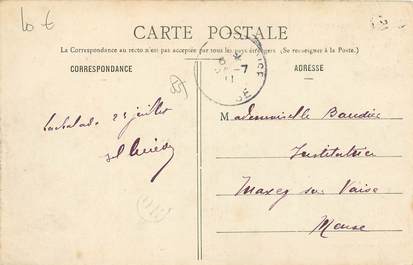 10 €
CARTE POSTALE
La Correspondance au recto n'est pas acceptée par tous les pays étrangers (Se renseigner à la Poste.)
CORRESPONDANCE
ADRESSE
55
Lachalade 25 juillet
Mademoiselle Baudier
Institutrice
Maxey sur Vaise
Meuse